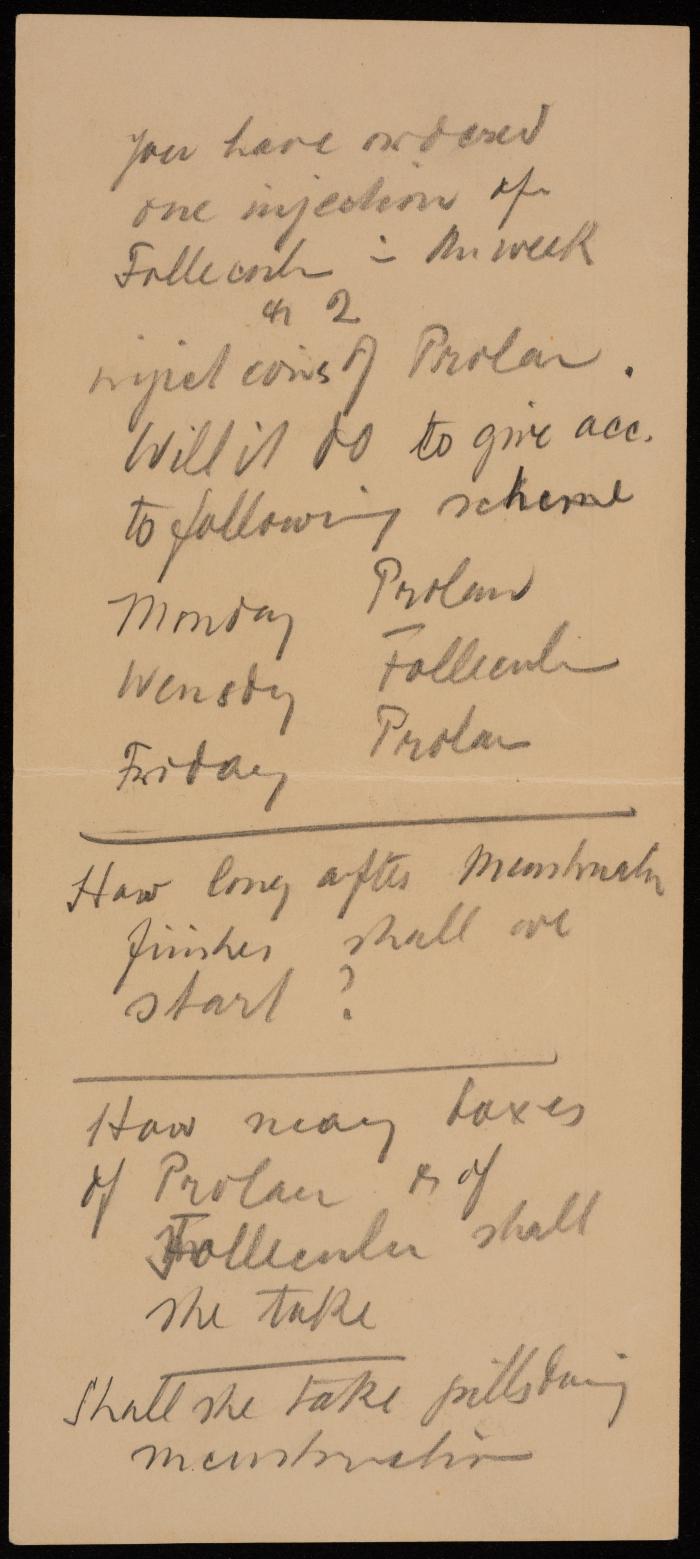 You have ordered
one injection of
Follecculi - in week
& 2
injections of Prolan.
Will it do to give acc.
to following scheme
Monday Prolan
Wensdy Folleculi
Friday Prolan
How long after menstruation
finishes shall we
start ?
How many boxes
of Prolan & of
Folleculi shall
she take
Shall she take pills during
menstruation